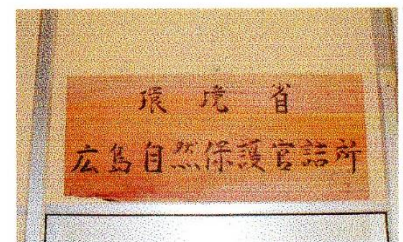 環境省
広島自然保護官詰所